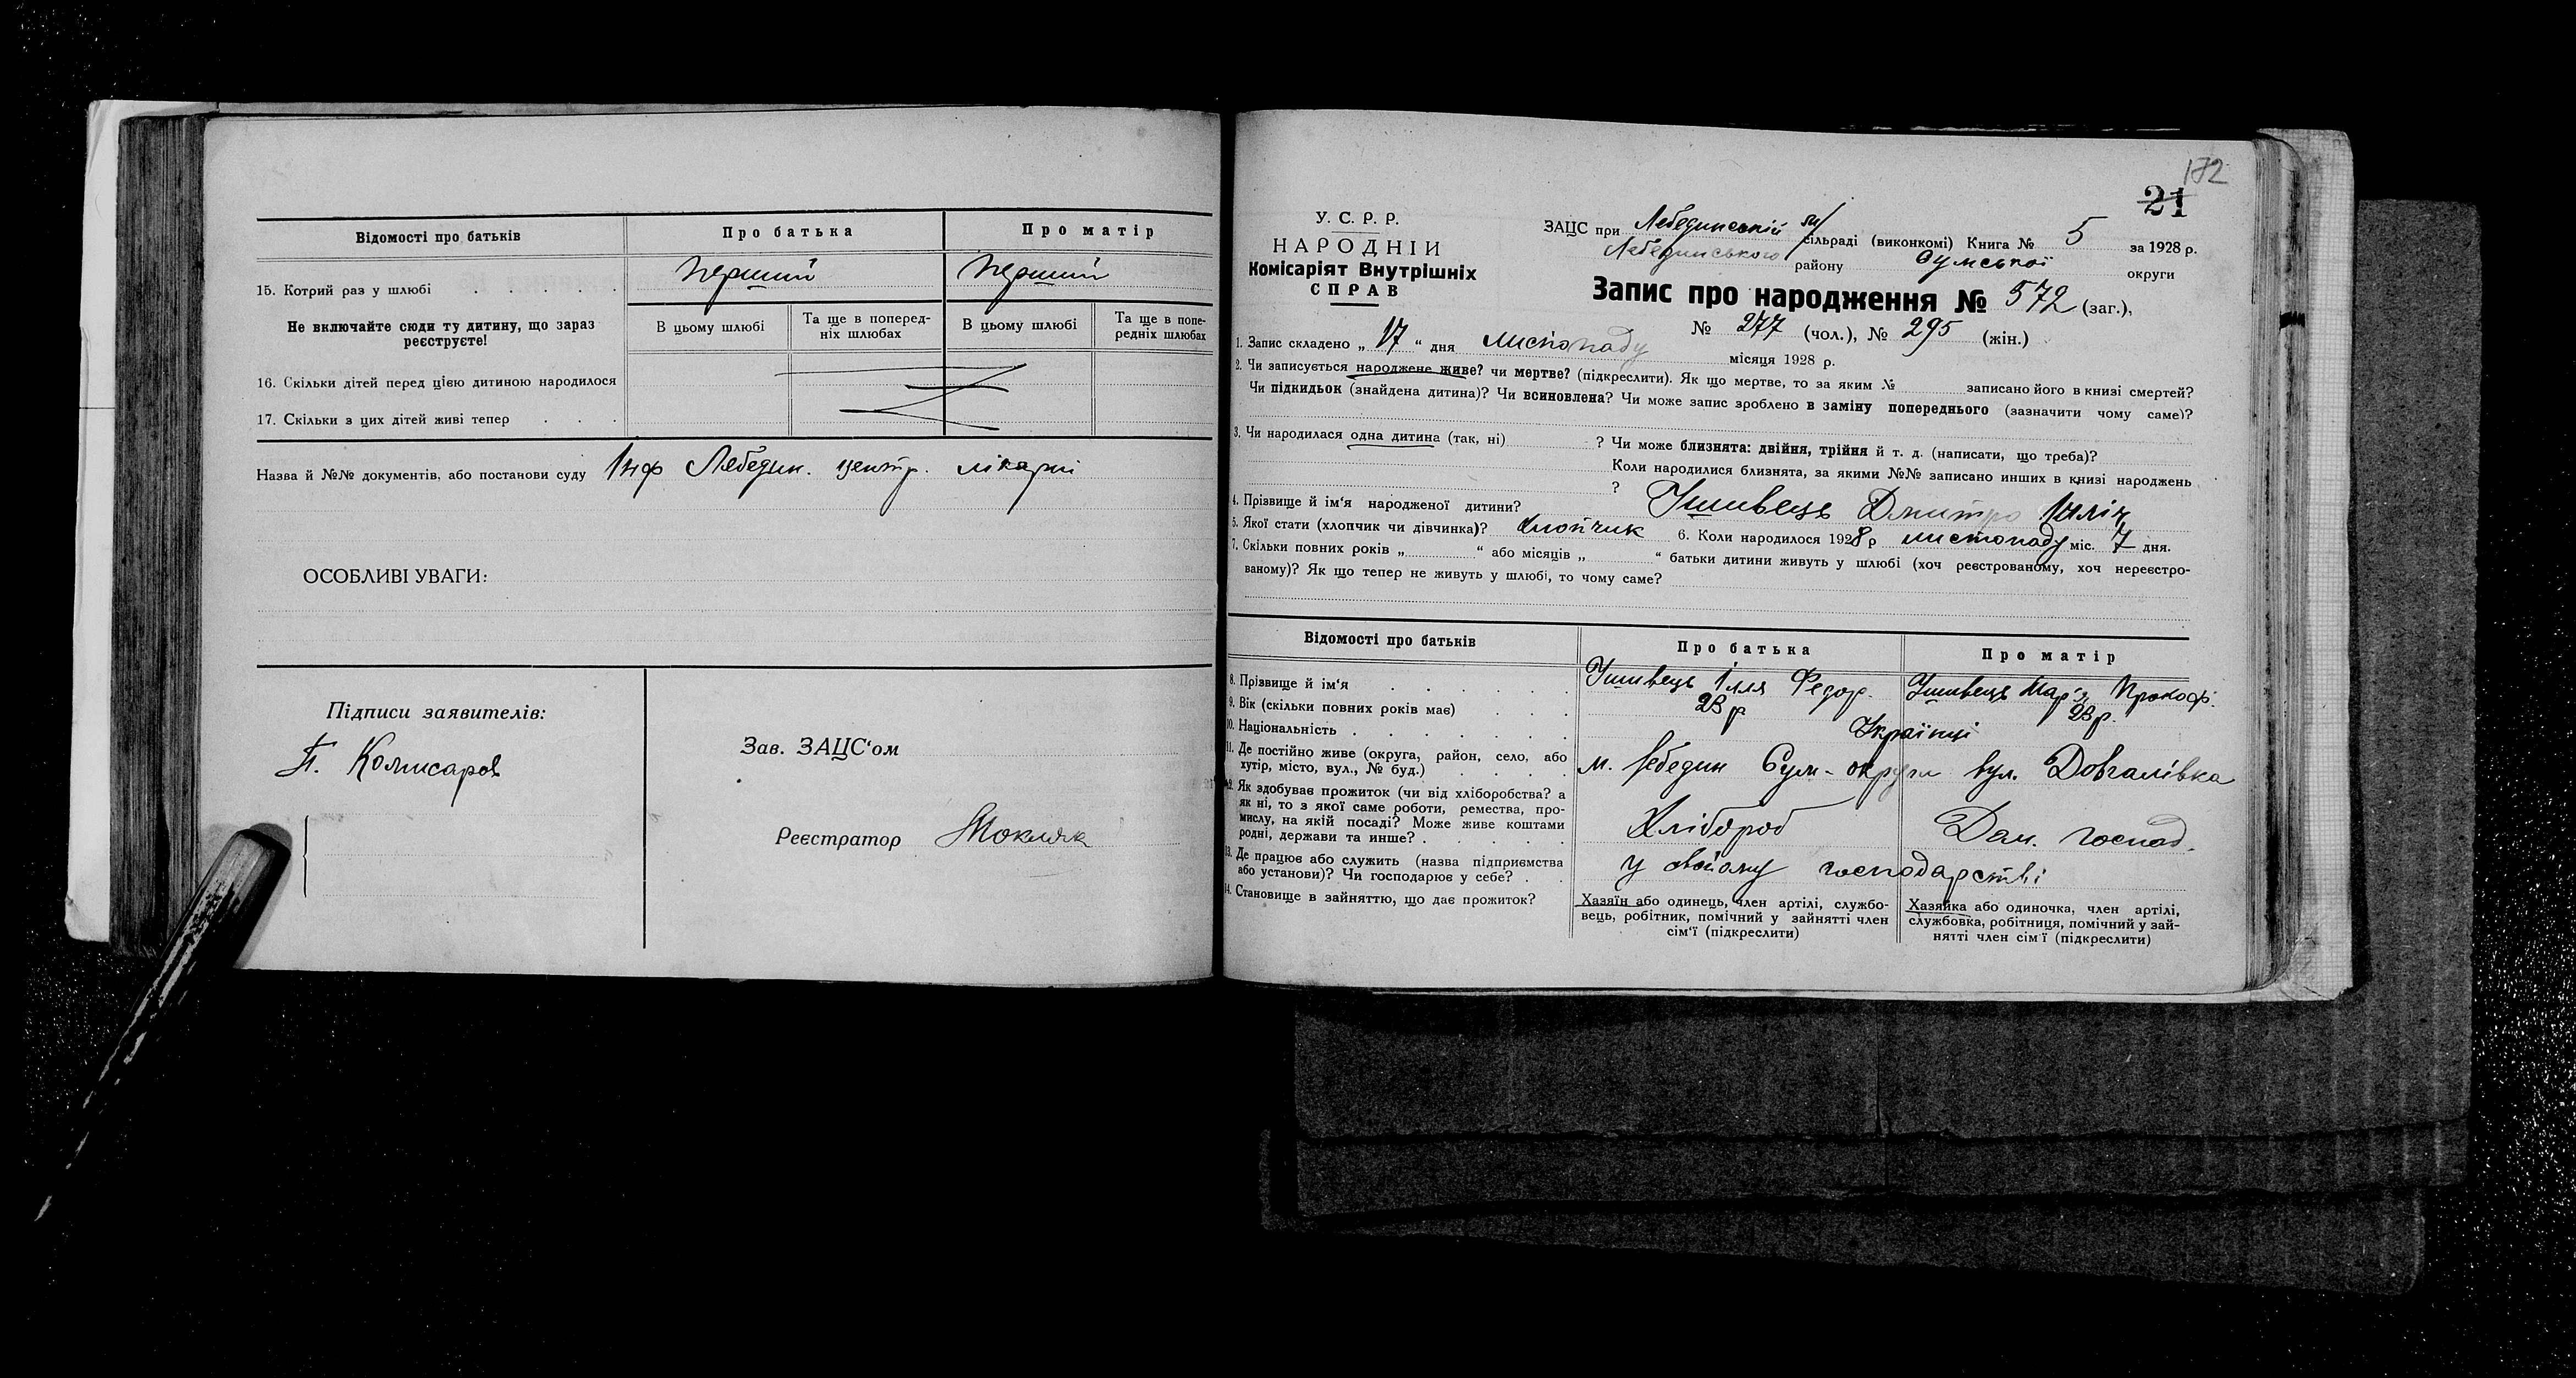 Відомості про батьків
Про батька
Про матір
15. Котрий раз у шлюбі
перший
перший
Не включайте сюди ту дитину, що зараз
реєструєте!
В цьому шлюбі
Та ще в поперед-
ніх шлюбах
В цьому шлюбі
Та ще в попе-
редніх шлюбах
16. Скільки дітей перед цією дитиною народилося
17. Скільки з цих дітей живі тепер
Назва й №№ документів, або постанови суду Лебедин. центр. лікарні
ОСОБЛИВІ УВАГИ:
Підписи заявителів:
П. Комисаров
Зав. ЗАЦС‘ом
Реєстратор Мокляк
172
21
У. С. Р. Р.
НАРОДНІЙ
Комісаріят Внутрішніх
СПРАВ
ЗАЦС при Лебединській сільраді (виконкомі) Книга № 5 за 1928 р.
Лебединського району Сумської округи
Запис про народження № 572 (заг.),
№ 277 (чол.), № 295 (жін.)
1. Запис складено „ 17 “ дня листопаду місяця 1928 р.
2. Чи записується народжене живе? чи мертве? (підкреслити). Як що мертве, то за яким № записано його в книзі смертей?
Чи підкидьок (знайдена дитина)? Чи всиновлена? Чи може запис зроблено в заміну попереднього (зазначити чому саме)?
3. Чи народилася одна дитина (так, ні) ? Чи може близнята: двійня, трійня й т. д. (написати, що треба)?
Коли народилися близнята, за якими №№ записано инших в книзі народжень
?
4. Прізвище й ім‘я народженої дитини? Ушивець Дмитро Ілліч
5. Якої стати (хлопчик чи дівчинка)? хлопчик 6. Коли народилося 1928 р листопаду міс. 7 дня.
7. Скільки повних років „ “ або місяців „ “ батьки дитини живуть у шлюбі (хоч реєстрованому, хоч нереєстро-
ваному)? Як що тепер не живуть у шлюбі, то чому саме?
Відомості про батьків
Про батька
Про матір
8. Прізвище й ім‘я
Ушивець Ілля Федор.
Ушивець Мар‘я Прокоф.
9. Вік (скільки повних років має)
23 р
23 р.
10. Національність
Українці
11. Де постійно живе (округа, район, село, або
хутір, місто, вул., № буд.)
м. Лебедин Сум- округи вул. Довгалівка
12. Як здобуває прожиток (чи від хліборобства? а
як ні, то з якої саме роботи, ремества, про-
мислу, на якій посаді? Може живе коштами
родні, держави та инше?
Хлібороб
Дом. господ.
13. Де працює або служить (назва підприємства
або установи)? Чи господарює у себе?
у своїому господарстві
14. Становище в зайняттю, що дає прожиток?
Хазяїн або одинець, член артілі, службо-
вець, робітник, помічний у зайнятті член
сім‘ї (підкреслити)
Хазяйка або одиночка, член артілі,
службовка, робітниця, помічний у зай-
нятті член сім‘ї (підкреслити)